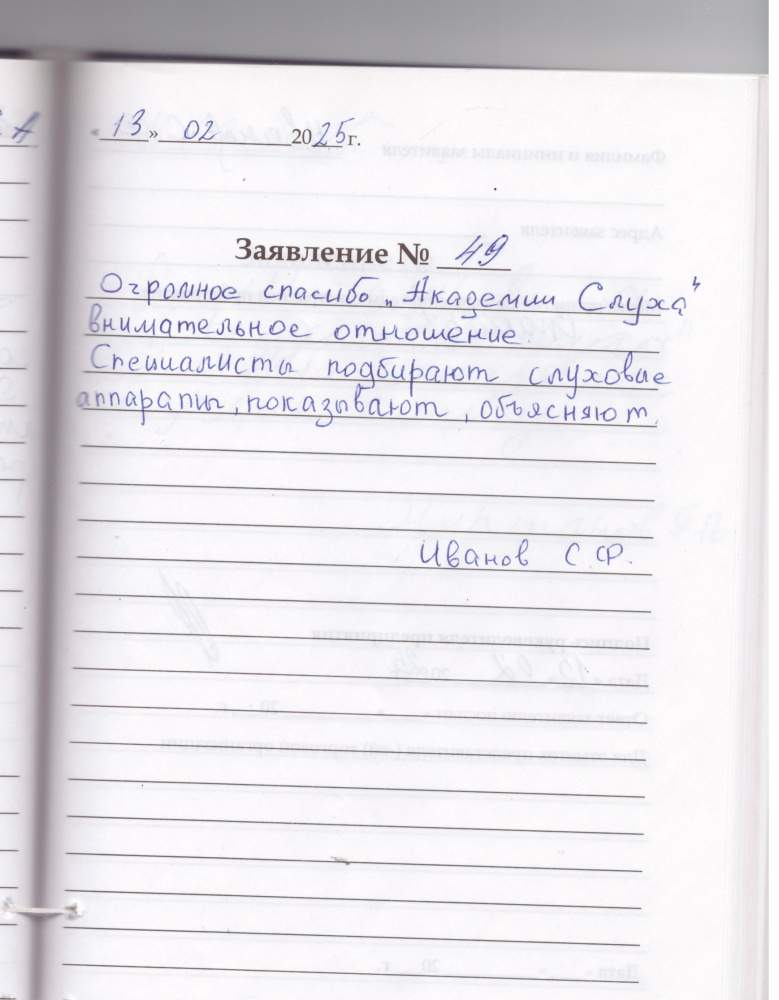 А
« 13 » 02 2025 г.
Заявление № 49
Огромное спасибо „Академии Слуха“
внимательное отношение.
Специалисты подбирают слуховые
аппараты, показывают, объясняют.
Иванов С.Ф.